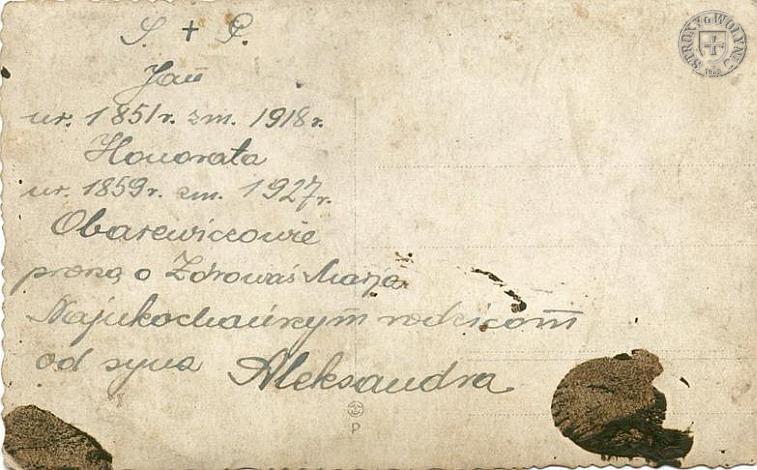 Ś. + P.
Jan
ur. 1851r. zm. 1918r.
Honorata
ur. 1859r. zm. 1927r.
Obarewiczowie
proszą o Zdrowaś Marja
Najukochańszym rodzicom
od syna Aleksandra
P
STRONY o WOŁYNIU